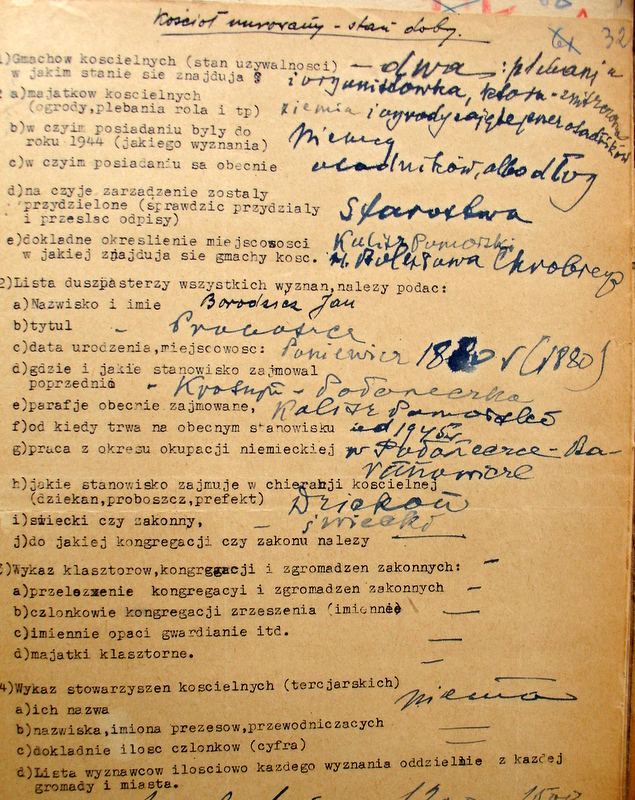 Kościoł murowany - stan dobry.
61 32
1)Gmachow koscielnych (stan uzywalnosci) - dwa: plebania
w jakim stanie sie znajduja ? i organistówka,
a)majatkow koscielnych
(ogrody,plebania rola i tp) ziemia i ogrody zajęte przez osadników
b)w czyim posiadaniu byly do
roku 1944 (jakiego wyznania) Niemcy
c)w czyim posiadaniu sa obecnie osadników, albo
d)na czyje zarzadzenie zostaly
przydzielone (sprawdzic przydzialy
i przeslac odpisy) Starostwa
e)dokladne okreslenie miejscowosci Kalisz Pomorski
w jakiej znajduja sie gmachy kosc. ul. Bolesława Chrobrego
2)Lista duszpasterzy wszystkich wyznan,nalezy podac:
a)Nazwisko i imie Borodzicz Jan
b)tytul - Proboszcz
c)data urodzenia,miejscowosc: Poniewież 1880 r (1880)
d)gdzie i jakie stanowisko zajmowal
poprzednio -
e)parafje obecnie zajmowane, Kalisz Pomorski
f)od kiedy trwa na obecnym stanowisku od 1945r.
g)praca z okresu okupacji niemieckiej w - Ba-
ranowicze
h)jakie stanowisko zajmuje w chierahji koscielnej
(dziekan,proboszcz,prefekt) Dziekan
i)swiecki czy zakonny, - świecki
j)do jakiej kongregacji czy zakonu nalezy —
3)Wykaz klasztorow,kongregacji i zgromadzen zakonnych: -
a)przelozenie kongregacyi i zgromadzen zakonnych —
b)czlonkowie kongregacji zrzeszenia (imienne) —
c)imiennie opaci gwardianie itd. —
d)majatki klasztorne. —
4)Wykaz stowarzyszen koscielnych (tercjarskich) niema
a)ich nazwa
b)nazwiska,imiona prezesow,przewodniczacych —
c)dokladnie ilosc czlonkow (cyfra) —
d)Lista wyznawcow ilosciowo kazdego wyznania oddzielnie z kazdej
gromady i miasta.